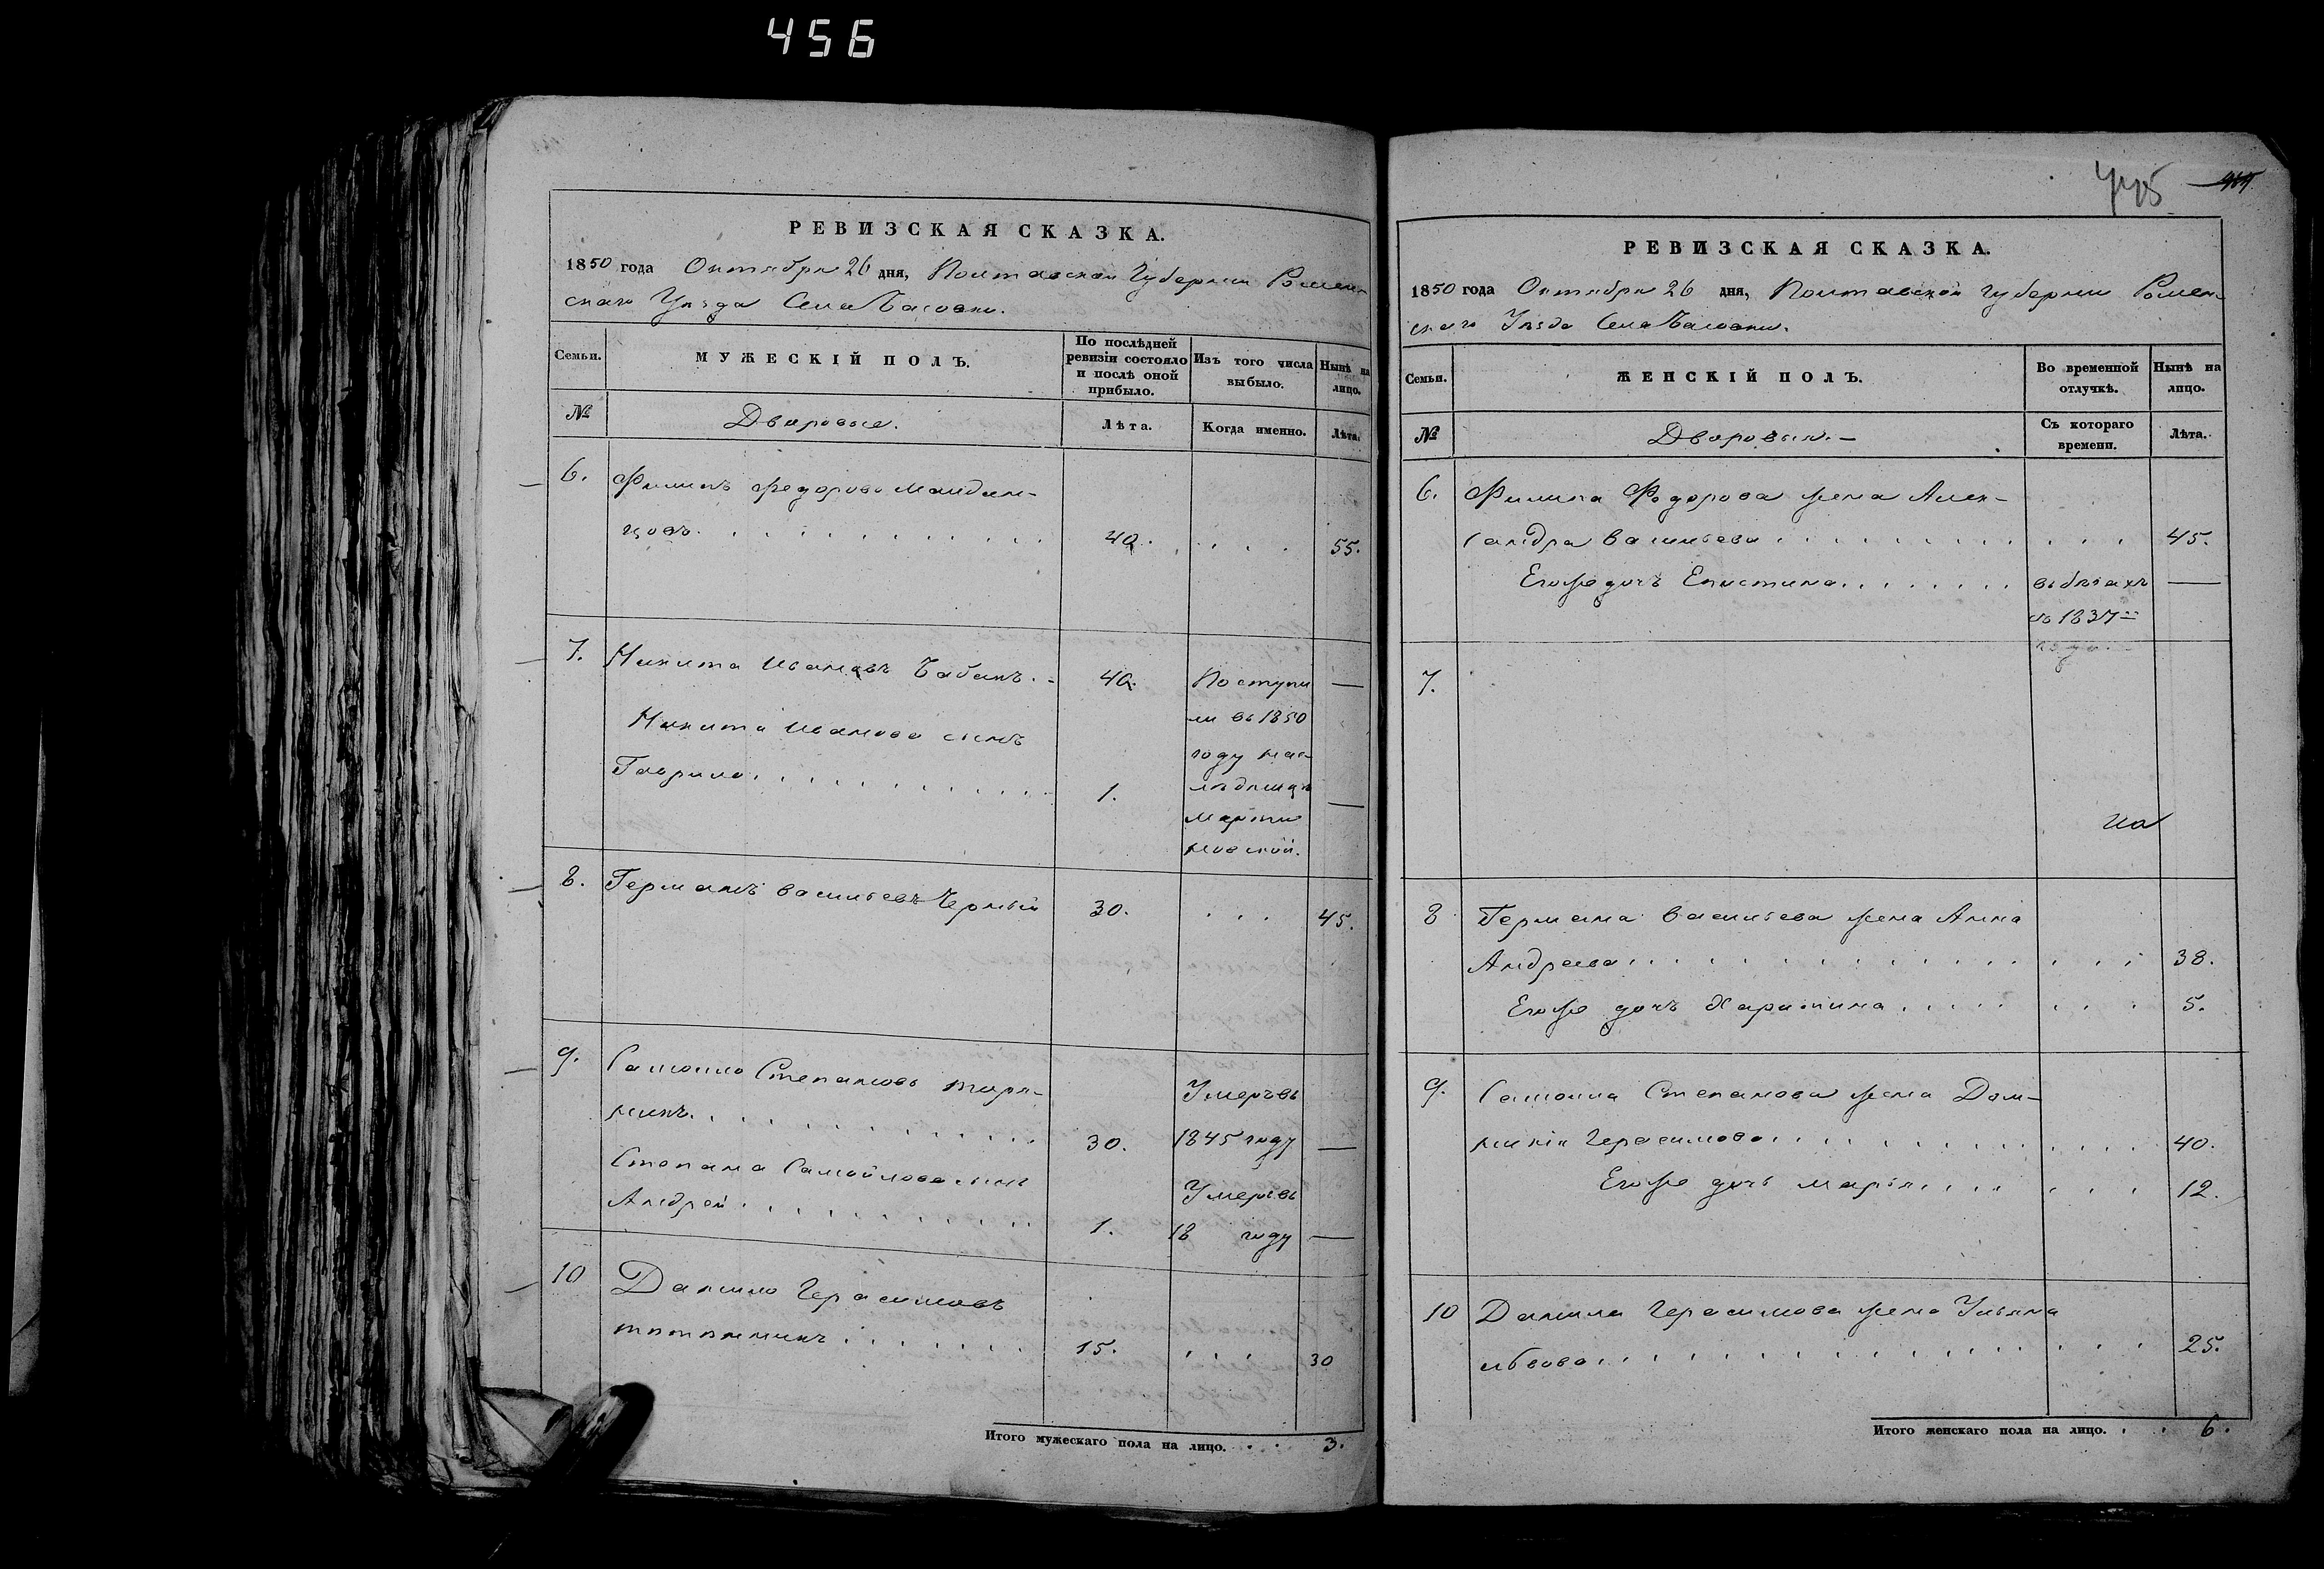 456
РЕВИЗСКАЯ СКАЗКА.
1850 года Октября 26 дня, Полтавской Губернии Ромен-
скаго Уѣзда Села Басовки.
Семьи.
МУЖЕСКІЙ ПОЛЪ.
По послѣдней
ревизіи состояло
и послѣ оной
прибыло.
Изъ того числа
выбыло.
Нынѣ на
лицо.
№
Дворовые.
Лѣта.
Когда именно.
Лѣта.
6. Филипъ Федоровъ
цовъ. 40. 55.
7. Никита Ивановъ Бабакъ. 40. Поступи
ли въ 1850
Никита Иванова сынъ
году
Гаврило. 1.
8. Германъ Васильевъ Черный 30. 45.
9. Самойло Степановъ
Умеръ въ
30. 1845 году
Степана Самойлова сынъ
Умеръ въ
Андрей 1. 18 году
10 Данило Герасимовъ
15. 30
Итого мужескаго пола на лицо. 3.
445
РЕВИЗСКАЯ СКАЗКА.
1850 года Октября 26 дня, Полтавской Губернии Ромен-
скаго Уѣзда Села Басовки.
Семьи.
ЖЕНСКІЙ ПОЛЪ.
Во временной
отлучкѣ.
Нынѣ на
лицо.
№
Дворовыя.
Съ котораго
времени.
Лѣта.
6. Филипа Федорова жена Алек-
сандра Васильева 45.
Егоже дочь Епистима въ бѣгахъ
съ 1837
года.
7.
8 Германа Васильева жена Анна
Андреева 38.
Егоже дочь Харитина 5.
9. Самоила Степанова жена Дом-
никія Герасимова 40.
Егоже дочь Марья 12.
10 Данила Герасимова жена Ульяна
Львова 25.
Итого женскаго пола на лицо. 6.